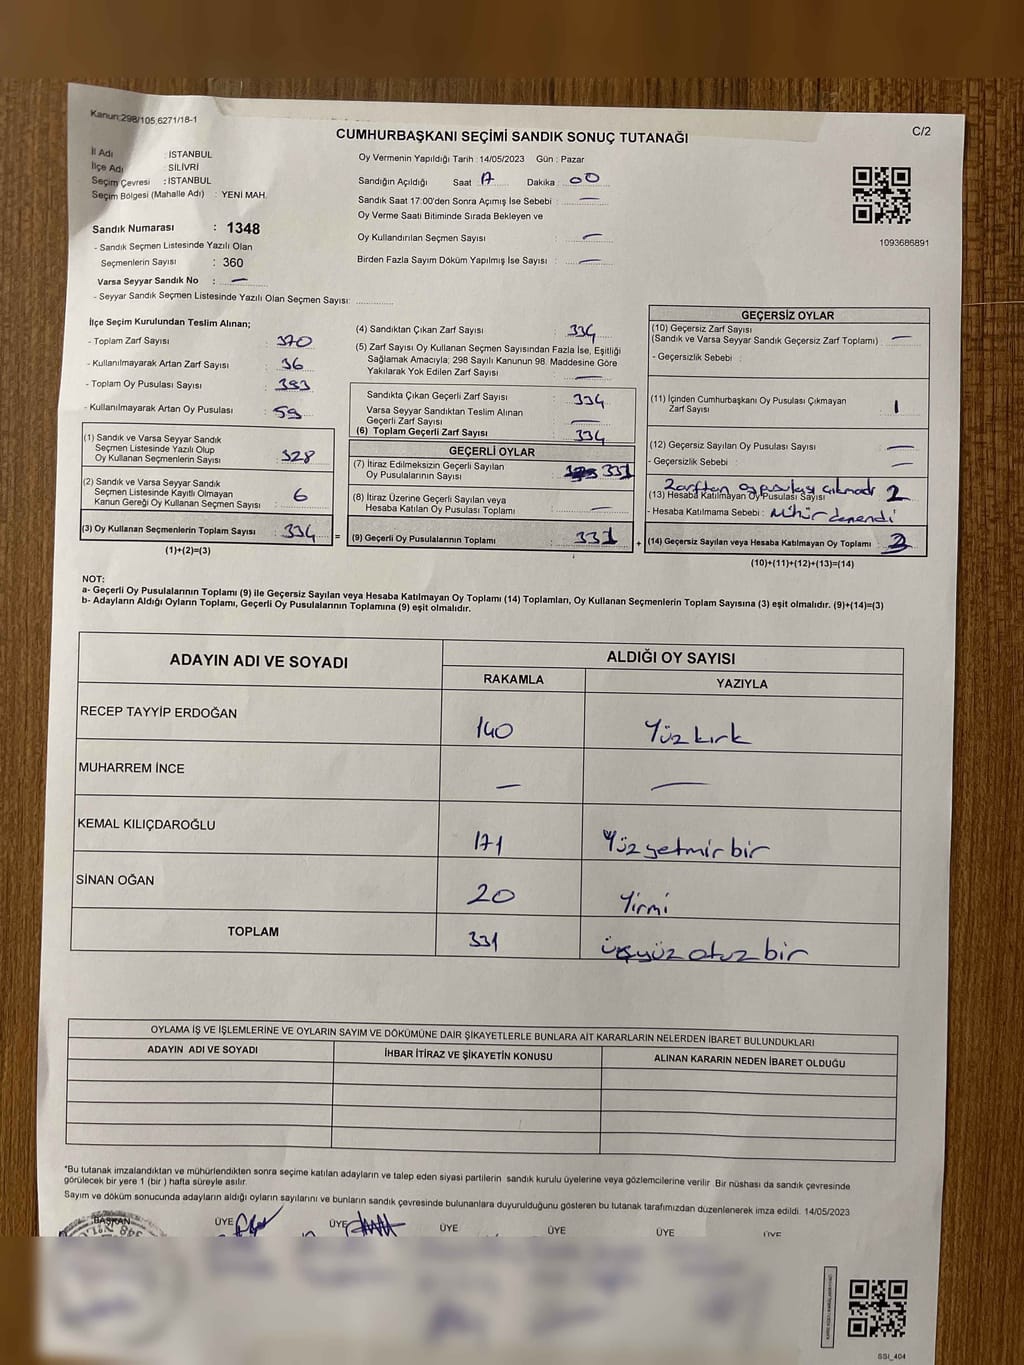 Kanun:298/105,6271/18-1
C/2
CUMHURBAŞKANI SEÇİMİ SANDIK SONUÇ TUTANAĞI
İl Adı : İSTANBUL
İlçe Adı : SİLİVRİ
Seçim Çevresi : İSTANBUL
Seçim Bölgesi (Mahalle Adı) : YENİ MAH.
Sandık Numarası : 1348
- Sandık Seçmen Listesinde Yazılı Olan
Seçmenlerin Sayısı : 360
Varsa Seyyar Sandık No : —
- Seyyar Sandık Seçmen Listesinde Yazılı Olan Seçmen Sayısı:
Oy Vermenin Yapıldığı Tarih : 14/05/2023 Gün : Pazar
Sandığın Açıldığı Saat 17 Dakika : 00
Sandık Saat 17:00'den Sonra Açımış İse Sebebi : —
Oy Verme Saati Bitiminde Sırada Bekleyen ve
Oy Kullandırılan Seçmen Sayısı : —
Birden Fazla Sayım Döküm Yapılmış İse Sayısı : —
1093686891
İlçe Seçim Kurulundan Teslim Alınan;
- Toplam Zarf Sayısı : 370
- Kullanılmayarak Artan Zarf Sayısı : 36
- Toplam Oy Pusulası Sayısı : 393
- Kullanılmayarak Artan Oy Pusulası : 59
(1) Sandık ve Varsa Seyyar Sandık
Seçmen Listesinde Yazılı Olup
Oy Kullanan Seçmenlerin Sayısı : 328
(2) Sandık ve Varsa Seyyar Sandık
Seçmen Listesinde Kayıtlı Olmayan
Kanun Gereği Oy Kullanan Seçmen Sayısı : 6
(3) Oy Kullanan Seçmenlerin Toplam Sayısı : 334
(1)+(2)=(3)
(4) Sandıktan Çıkan Zarf Sayısı : 334
(5) Zarf Sayısı Oy Kullanan Seçmen Sayısından Fazla İse, Eşitliği
Sağlamak Amacıyla; 298 Sayılı Kanunun 98. Maddesine Göre
Yakılarak Yok Edilen Zarf Sayısı : —
Sandıkta Çıkan Geçerli Zarf Sayısı : 334
Varsa Seyyar Sandıktan Teslim Alınan
Geçerli Zarf Sayısı : —
(6) Toplam Geçerli Zarf Sayısı : 334
GEÇERLİ OYLAR
(7) İtiraz Edilmeksizin Geçerli Sayılan
Oy Pusulalarının Sayısı : 331
(8) İtiraz Üzerine Geçerli Sayılan veya
Hesaba Katılan Oy Pusulası Toplamı : —
= (9) Geçerli Oy Pusulalarının Toplamı : 331
GEÇERSİZ OYLAR
(10) Geçersiz Zarf Sayısı
(Sandık ve Varsa Seyyar Sandık Geçersiz Zarf Toplamı) : —
- Geçersizlik Sebebi :
(11) İçinden Cumhurbaşkanı Oy Pusulası Çıkmayan
Zarf Sayısı : 1
(12) Geçersiz Sayılan Oy Pusulası Sayısı : —
- Geçersizlik Sebebi : —
Zarftan oy pusulası çıkmadı
(13) Hesaba Katılmayan Oy Pusulası Sayısı 2
- Hesaba Katılmama Sebebi : Mühür denendi
+ (14) Geçersiz Sayılan veya Hesaba Katılmayan Oy Toplamı : 3
(10)+(11)+(12)+(13)=(14)
NOT:
a- Geçerli Oy Pusulalarının Toplamı (9) ile Geçersiz Sayılan veya Hesaba Katılmayan Oy Toplamı (14) Toplamları, Oy Kullanan Seçmenlerin Toplam Sayısına (3) eşit olmalıdır. (9)+(14)=(3)
b- Adayların Aldığı Oyların Toplamı, Geçerli Oy Pusulalarının Toplamına (9) eşit olmalıdır.
ADAYIN ADI VE SOYADI
ALDIĞI OY SAYISI
RAKAMLA YAZIYLA
RECEP TAYYİP ERDOĞAN 140 Yüz kırk
MUHARREM İNCE — —
KEMAL KILIÇDAROĞLU 171 Yüz yetmir bir
SİNAN OĞAN 20 Yirmi
TOPLAM 331 üçyüz otuz bir
OYLAMA İŞ VE İŞLEMLERİNE VE OYLARIN SAYIM VE DÖKÜMÜNE DAİR ŞİKAYETLERLE BUNLARA AİT KARARLARIN NELERDEN İBARET BULUNDUKLARI
ADAYIN ADI VE SOYADI İHBAR İTİRAZ VE ŞİKAYETİN KONUSU ALINAN KARARIN NEDEN İBARET OLDUĞU
*Bu tutanak imzalandıktan ve mühürlendikten sonra seçime katılan adayların ve talep eden siyasi partilerin sandık kurulu üyelerine veya gözlemcilerine verilir. Bir nüshası da sandık çevresinde
görülecek bir yere 1 (bir) hafta süreyle asılır.
Sayım ve döküm sonucunda adayların aldığı oyların sayılarını ve bunların sandık çevresinde bulunanlara duyurulduğunu gösteren bu tutanak tarafımızdan düzenlenerek imza edildi. 14/05/2023
BAŞKAN ÜYE ÜYE ÜYE ÜYE ÜYE ÜYE
SSI_404